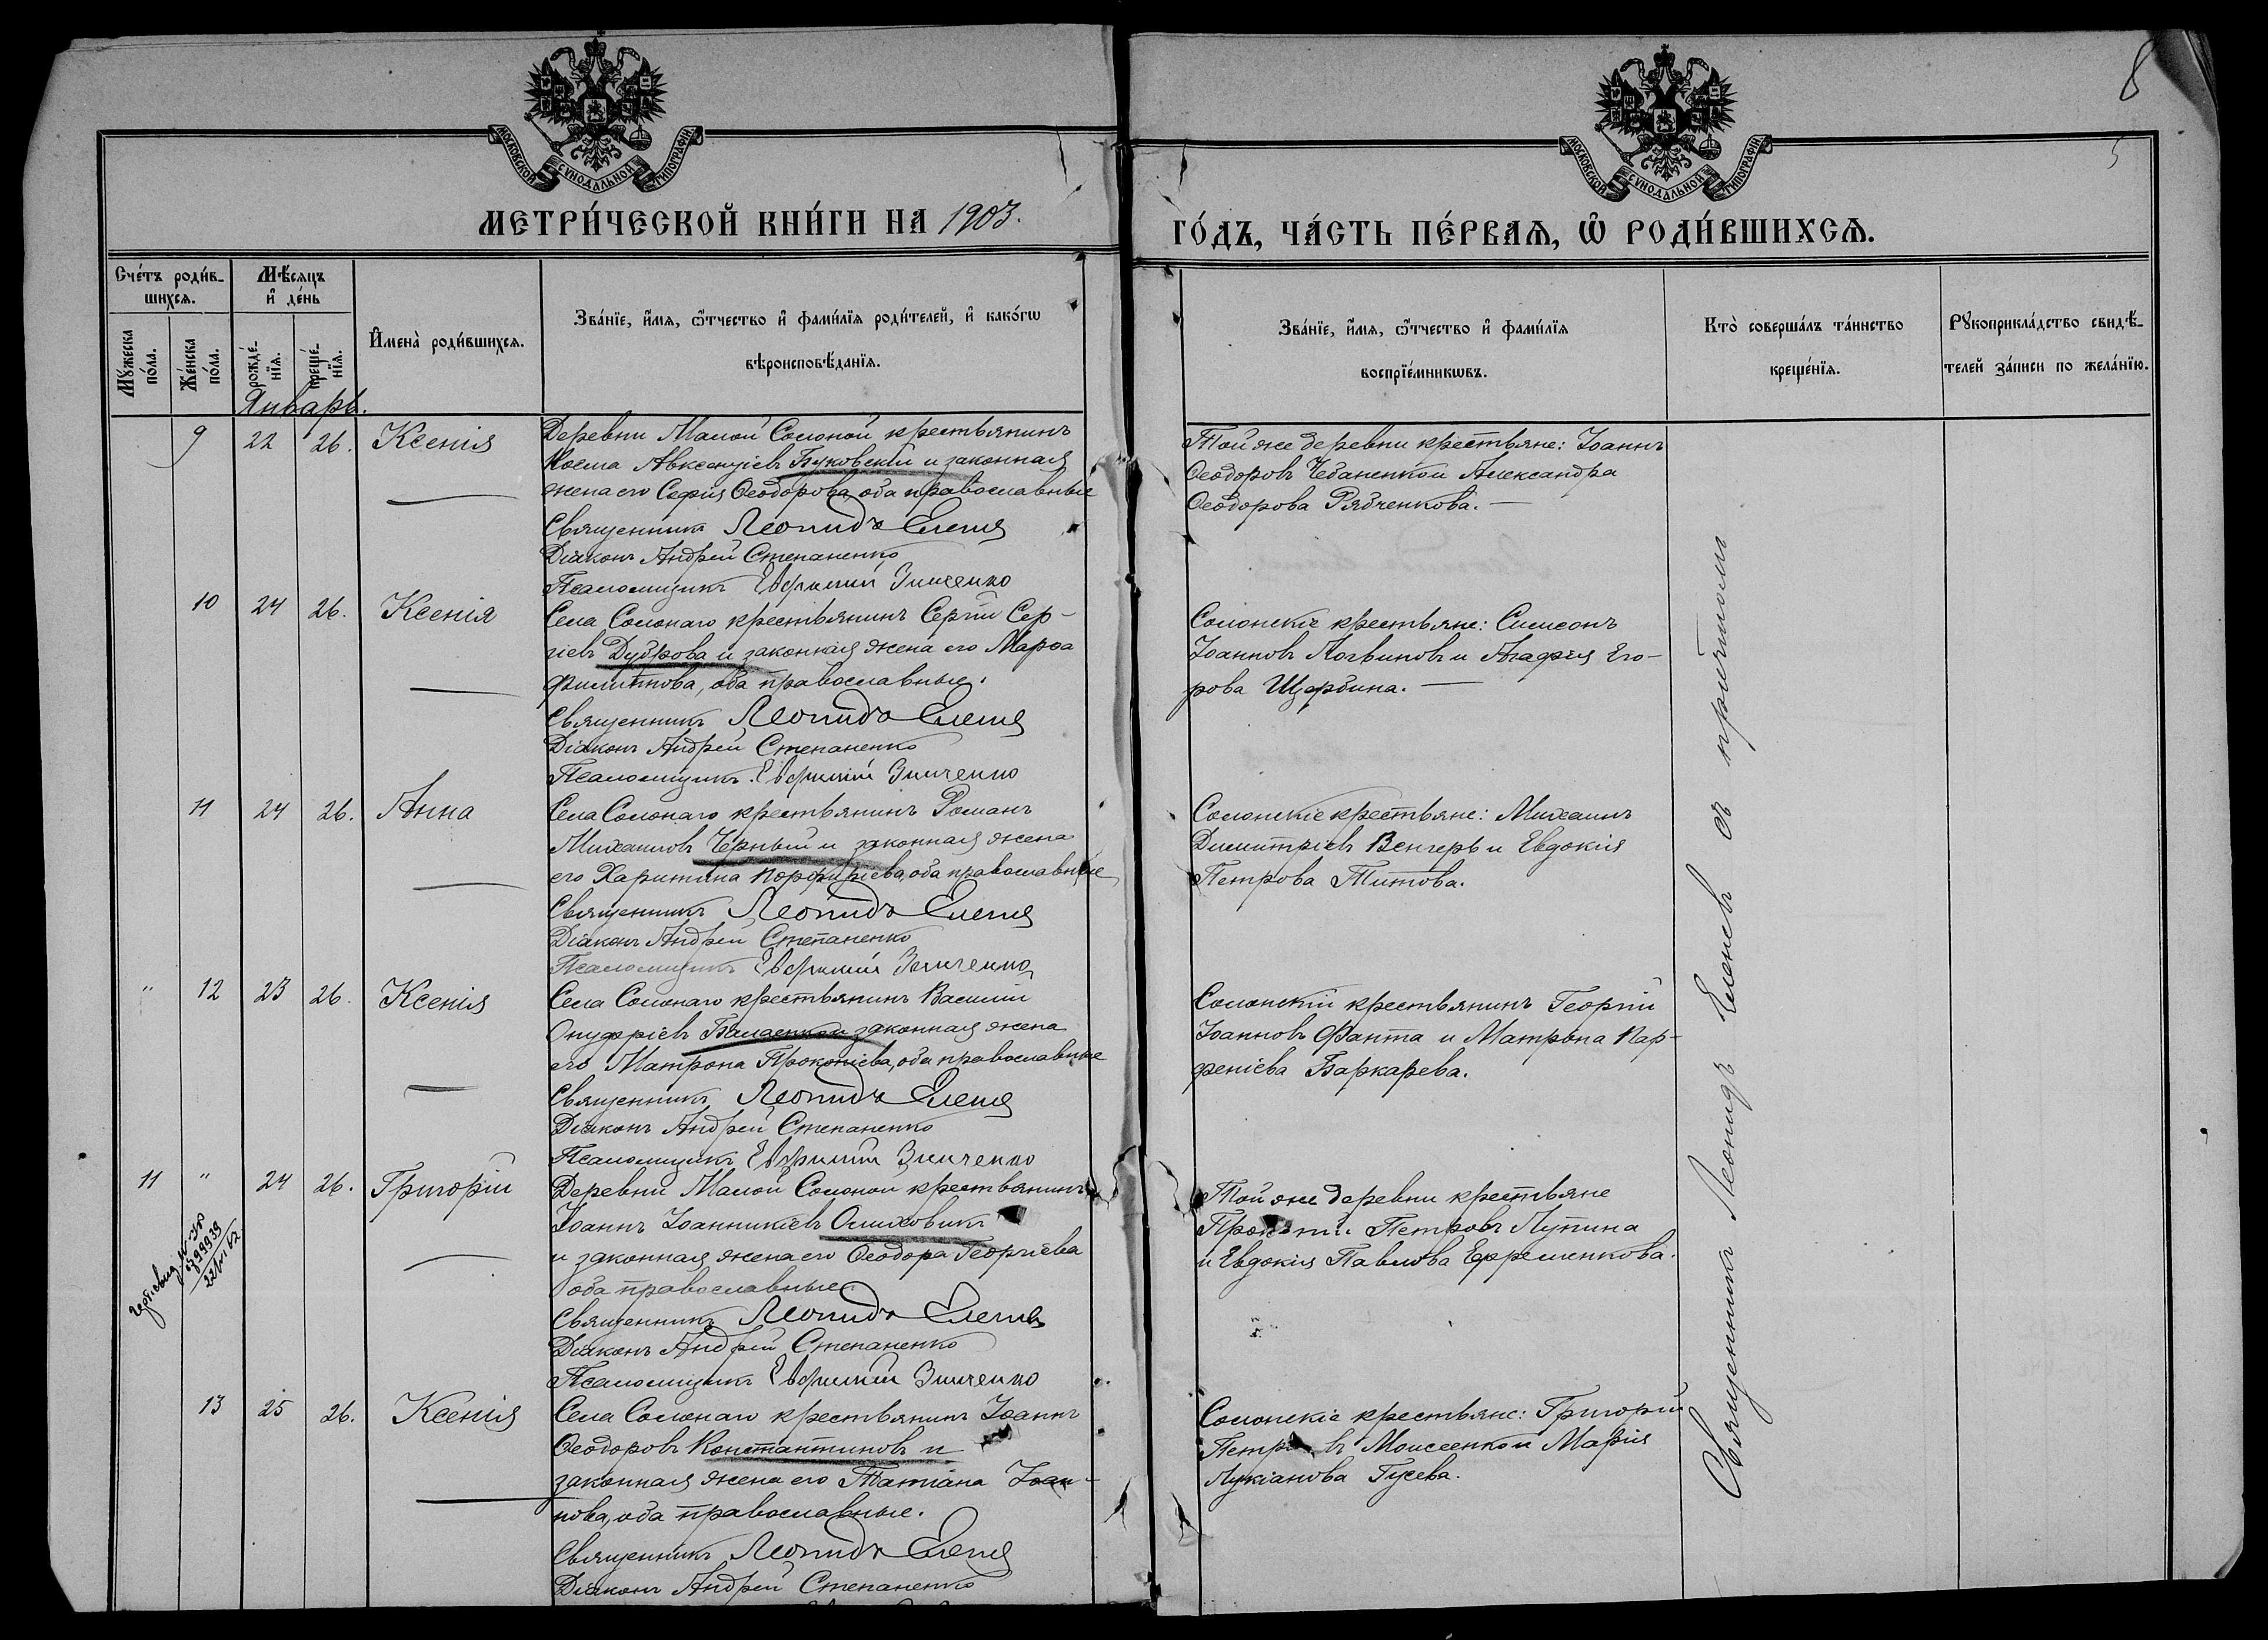 8
5
МОСКОВСКОЙ СѴНОДАЛЬНОЙ ТИПОГРАФІИ
МОСКОВСКОЙ СѴНОДАЛЬНОЙ ТИПОГРАФІИ
МЕТРИ́ЧЕСКОЙ КНИ́ГИ НА 1903.
ГО́ДЪ, ЧА́СТЬ ПЕ́РВАѦ, Ѡ҆ РОДИ́ВШИХСѦ.
Сче́тъ роди́в-
шихсѧ.
Мꙋ́жеска по́ла.
Же́нска по́ла.
Мѣ́сѧцъ
и҆ де́нь
рожде́-
нїѧ.
креще́-
нїѧ.
И҆мена̀ роди́вшихсѧ.
Зва́нїе, и҆́мѧ, ѻ҆́тчество и҆ фами́лїѧ роди́телей, и҆ како́гѡ
вѣроисповѣ́данїѧ.
Зва́нїе, и҆́мѧ, ѻ҆́тчество и҆ фами́лїѧ
воспрїе́мникѡвъ.
Кто̀ соверша́лъ та́инство
креще́нїѧ.
Рꙋкоприкла́дство свидѣ́-
телей за́писи по жела́нїю.
Январь.
9 22 26. Ксенія
Деревни Малой Солоной крестьянинъ
Косма Авксентіевъ Буковскій и законная
жена его Софія Ѳеодорова, оба православные
Священникъ Леонидъ Еленевъ
Діаконъ Андрей Степаненко
Псаломщикъ Евфимій Зинченко
Той же деревни крестьяне: Іоаннъ
Ѳеодоровъ Чебаненко и Александра
Ѳеодорова Рябченкова. —
10 24 26. Ксенія
Села Солонаго крестьянинъ Сергій Сер-
гіевъ Дуброва и законная жена его Марѳа
Филиппова, оба православные.
Священникъ Леонидъ Еленевъ
Діаконъ Андрей Степаненко
Псаломщикъ Евфимій Зинченко
Солонскіе крестьяне: Симеонъ
Іоанновъ Логвиновъ и Агафія Его-
рова Щербина. —
11 24 26. Анна
Села Солонаго крестьянинъ Романъ
Михаиловъ Черный и законная жена
его Харитина Порфиріева, оба православные
Священникъ Леонидъ Еленевъ
Діаконъ Андрей Степаненко
Псаломщикъ Евфимій Зинченко
Солонскіе крестьяне: Михаилъ
Димитріевъ Венгеръ и Евдокія
Петрова Титова.
" 12 23 26. Ксенія
Села Солонаго крестьянинъ Василій
Онуфріевъ Балаенко и законная жена
его Матрона Прокопіева, оба православные
Священникъ Леонидъ Еленевъ
Діаконъ Андрей Степаненко
Псаломщикъ Евфимій Зинченко
Солонскій крестьянинъ Георгій
Іоанновъ Фанта и Матрона Пар-
феніева Баркарева.
11 " 24 26. Григорій
Деревни Малой Солоной крестьянинъ
Іоаннъ Іоанникіевъ Ольховикъ
и законная жена его Ѳеодора Георгіева
оба православные.
Священникъ Леонидъ Еленевъ
Діаконъ Андрей Степаненко
Псаломщикъ Евфимій Зинченко
Той же деревни крестьяне
Петровъ Лупина
и Евдокія Павлова Ефременкова.
13 25 26. Ксенія
Села Солонаго крестьянинъ Іоаннъ
Ѳеодоровъ Константиновъ и
законная жена его Татіана Іоан-
нова, оба православные.
Священникъ Леонидъ Еленевъ
Діаконъ Андрей Степаненко
Солонскіе крестьяне: Григорій
Петровъ Моисеенко и Марія
Лукіанова Гусева.
Священникъ Леонидъ Еленевъ съ причтомъ